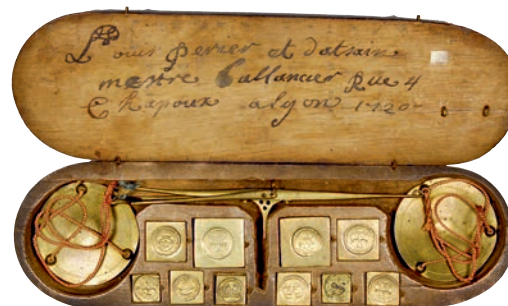 Louis perier et datrain
mestre ballancier Rue 4
Chapoux alyon 1720